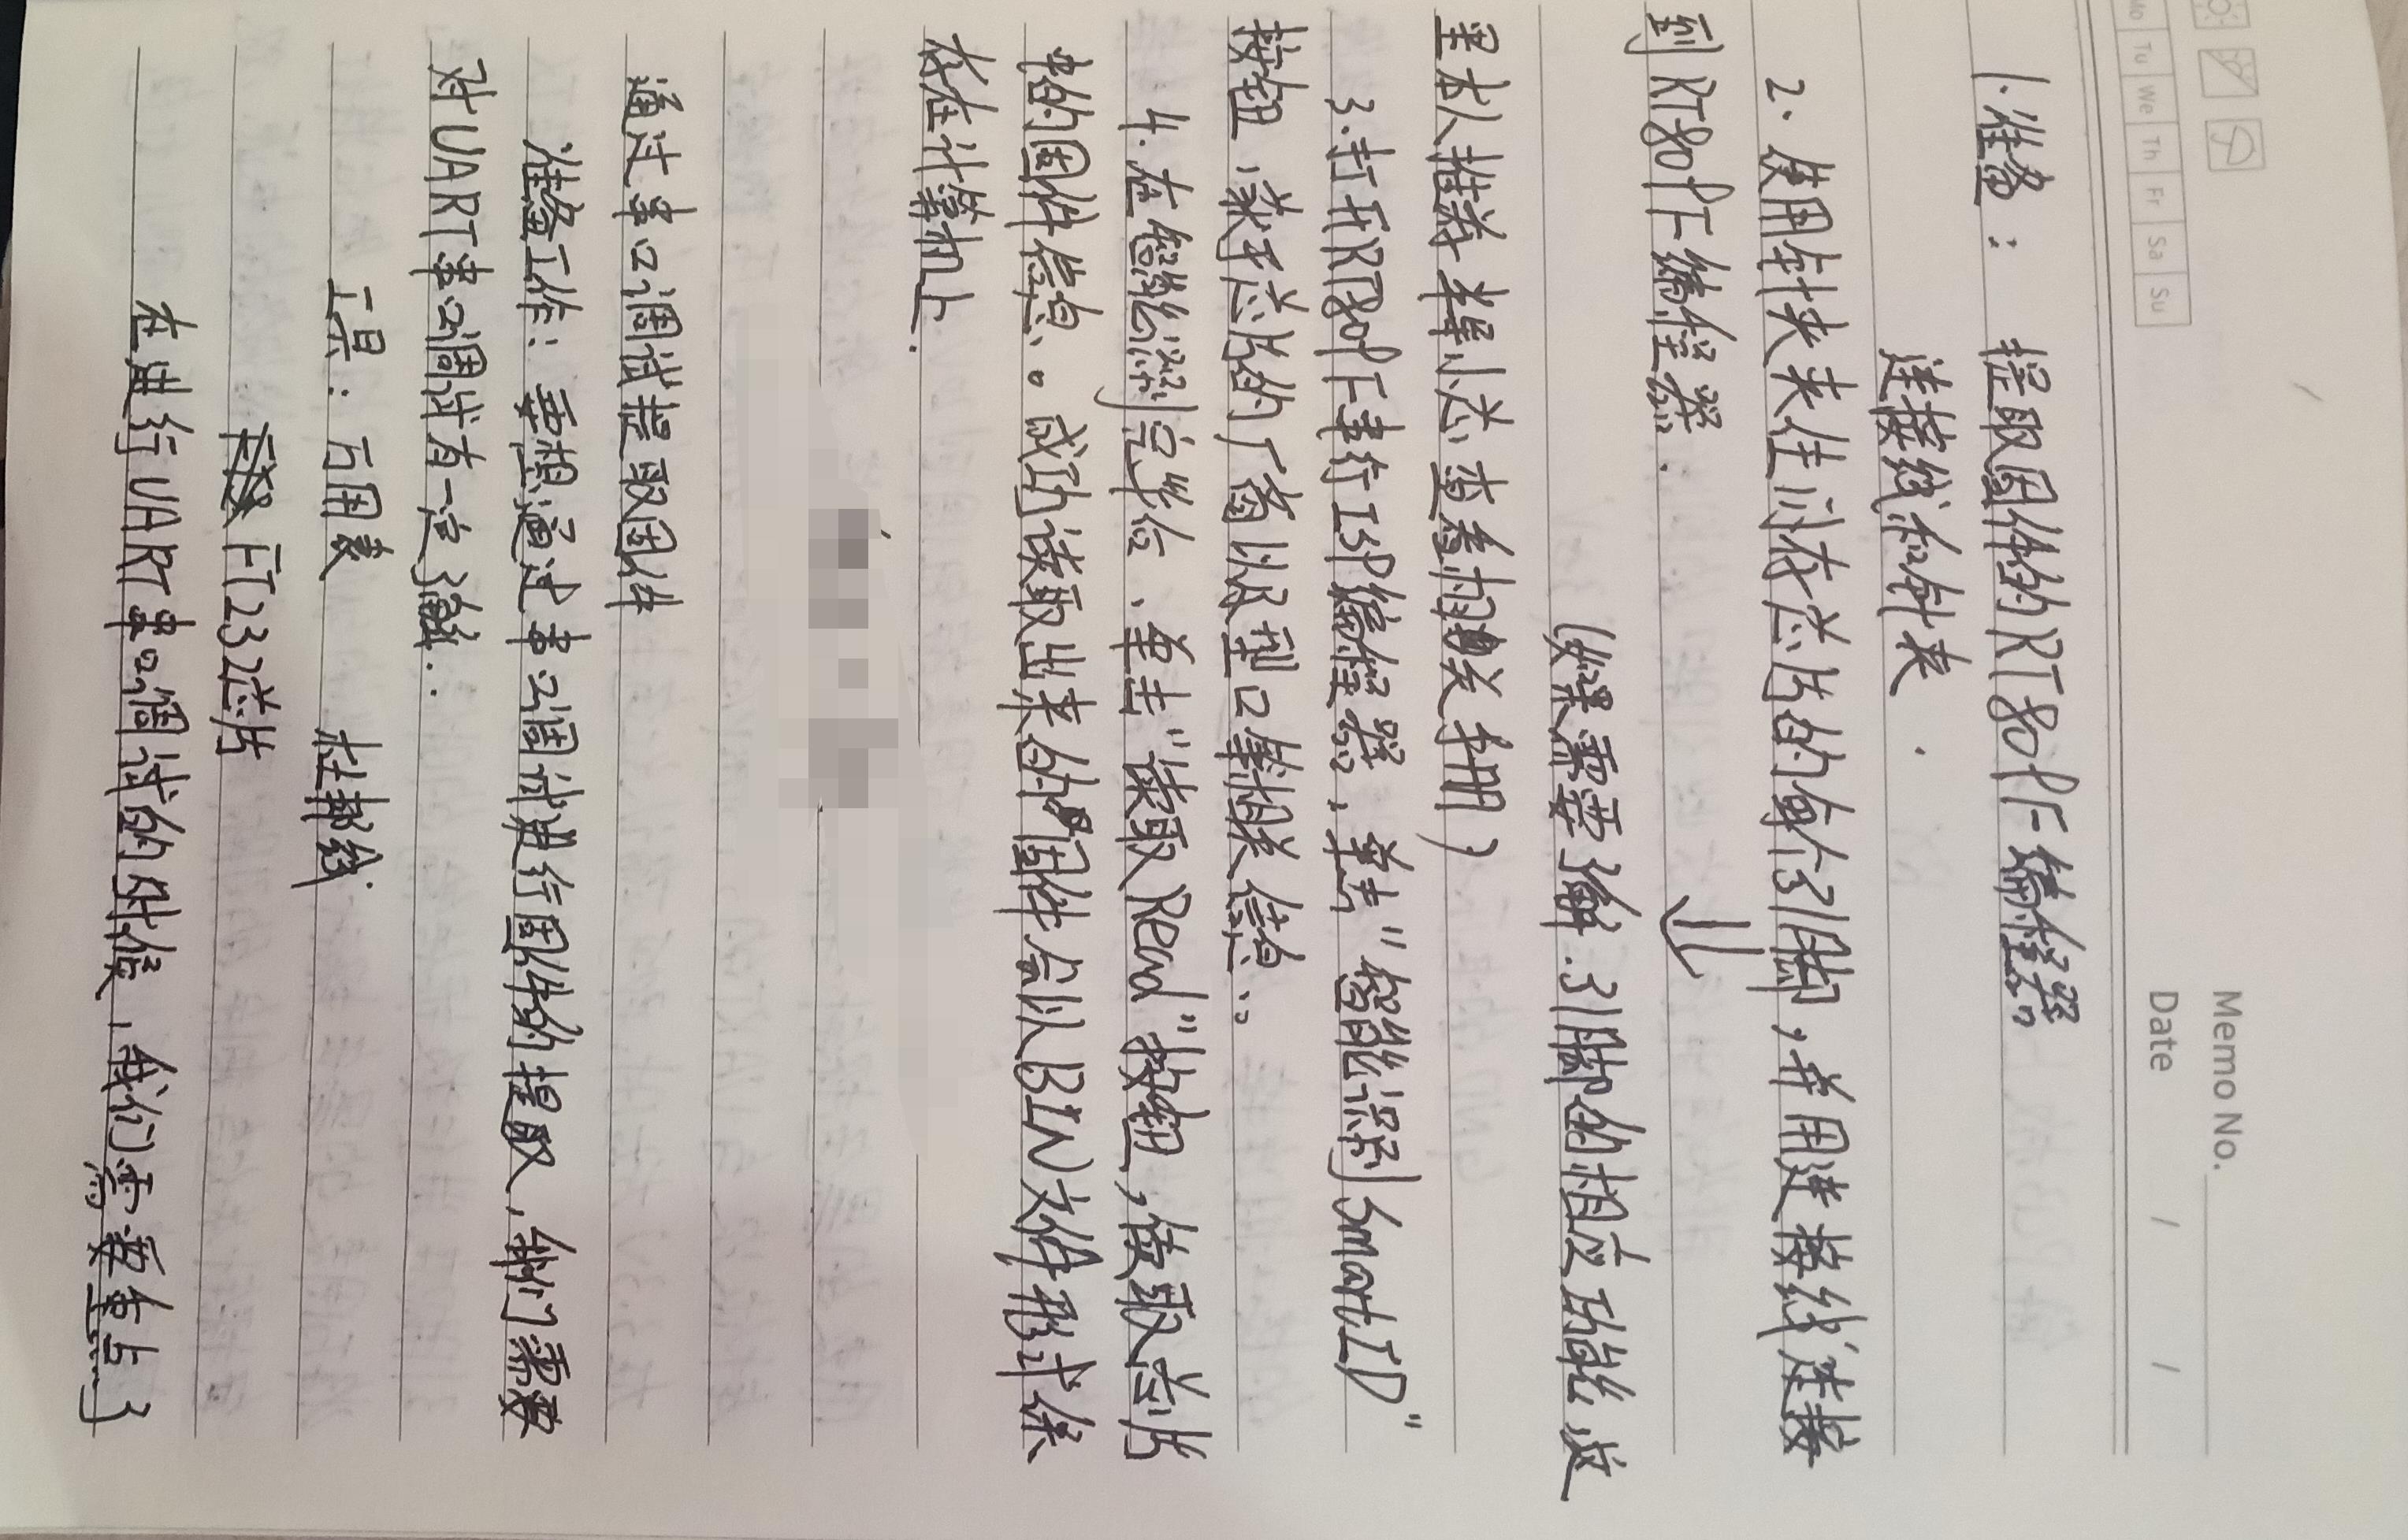 Memo No.
Mo Tu We Th Fr Sa Su
Date / /
1.准备： 提取固件的RT809F编程器
连接线和针夹.
2.使用针夹夹住闪存芯片的每个引脚，并用连接线连接
到RT809F编程器.
(如果需要了解.引脚的相应功能.这
里本人推荐 半导小芯 查看相关 )
3.打开RT809F串行ISP编程器，单击"智能识别SmartID"
按钮，获取芯片的厂商以及型口等相关信息.。
4.在智能识别完毕后、单击"读取Read"按钮，读取芯片
中的固件信息。成功读取出来的固件会以BIN文件形式保
存在计算机上.
通过串口调试提取固件
准备工作：要想通过串口调试进行固件的提取，我们需要
对UART串口调试有一定了解..
工具：万用表 杜邦线
FT232芯片
在进行UART串口调试的时候，我们需要事先了